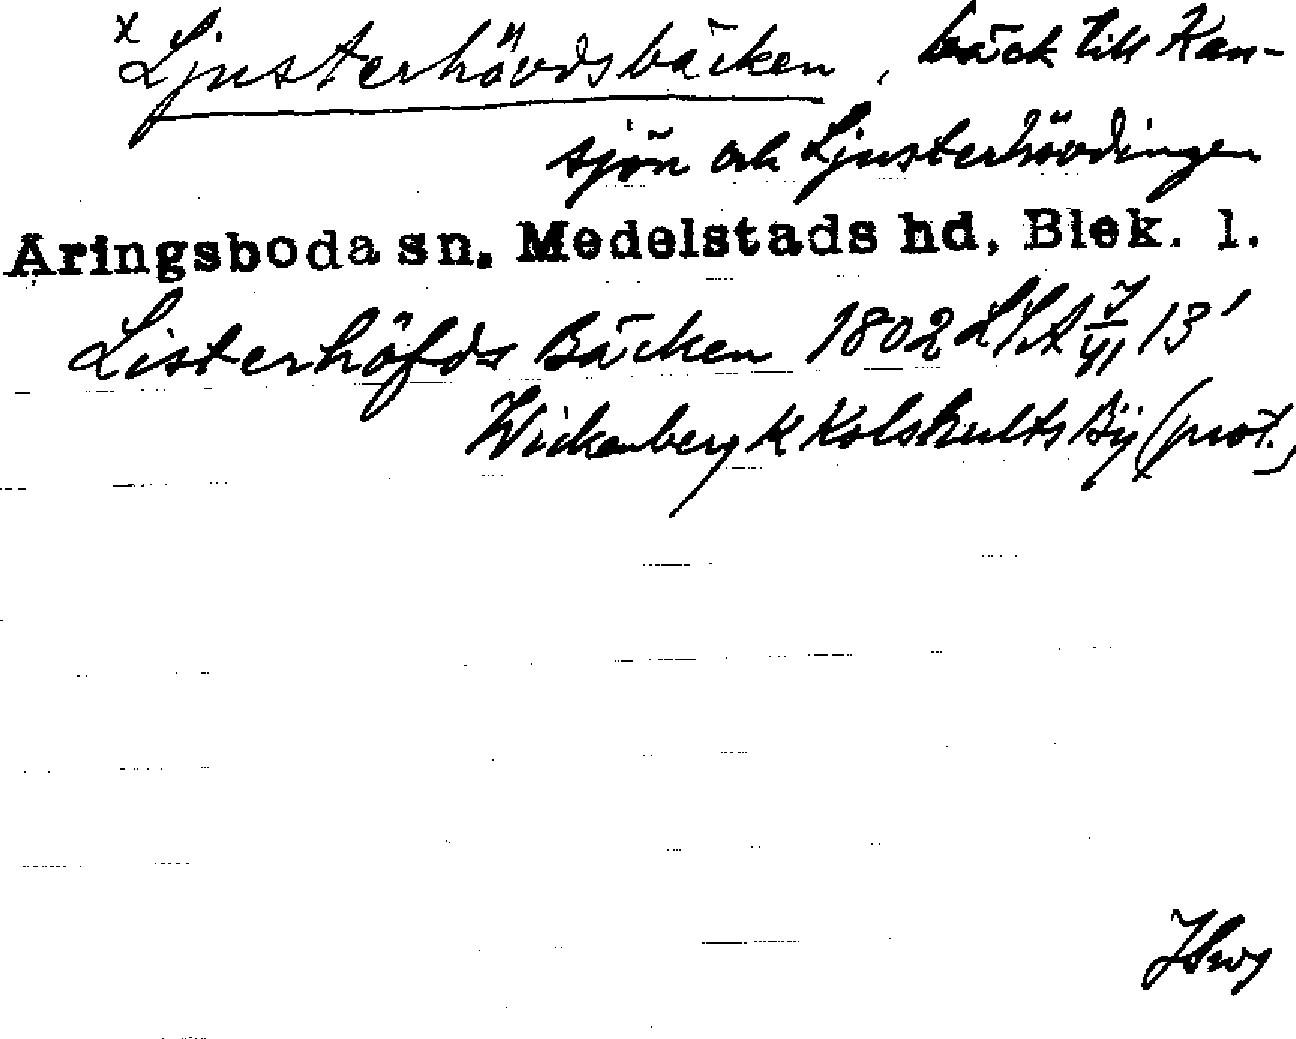 x Ljusterhövdsbäcken, bäck till Kan-
sjön och Ljusterhövdingen
Åringsboda sn. Medelstads hd, Blek. l.
Listerhöfds Bäcken 1802 LSA J/VI 13'
Wickenberg K Kolskults By (prot.)